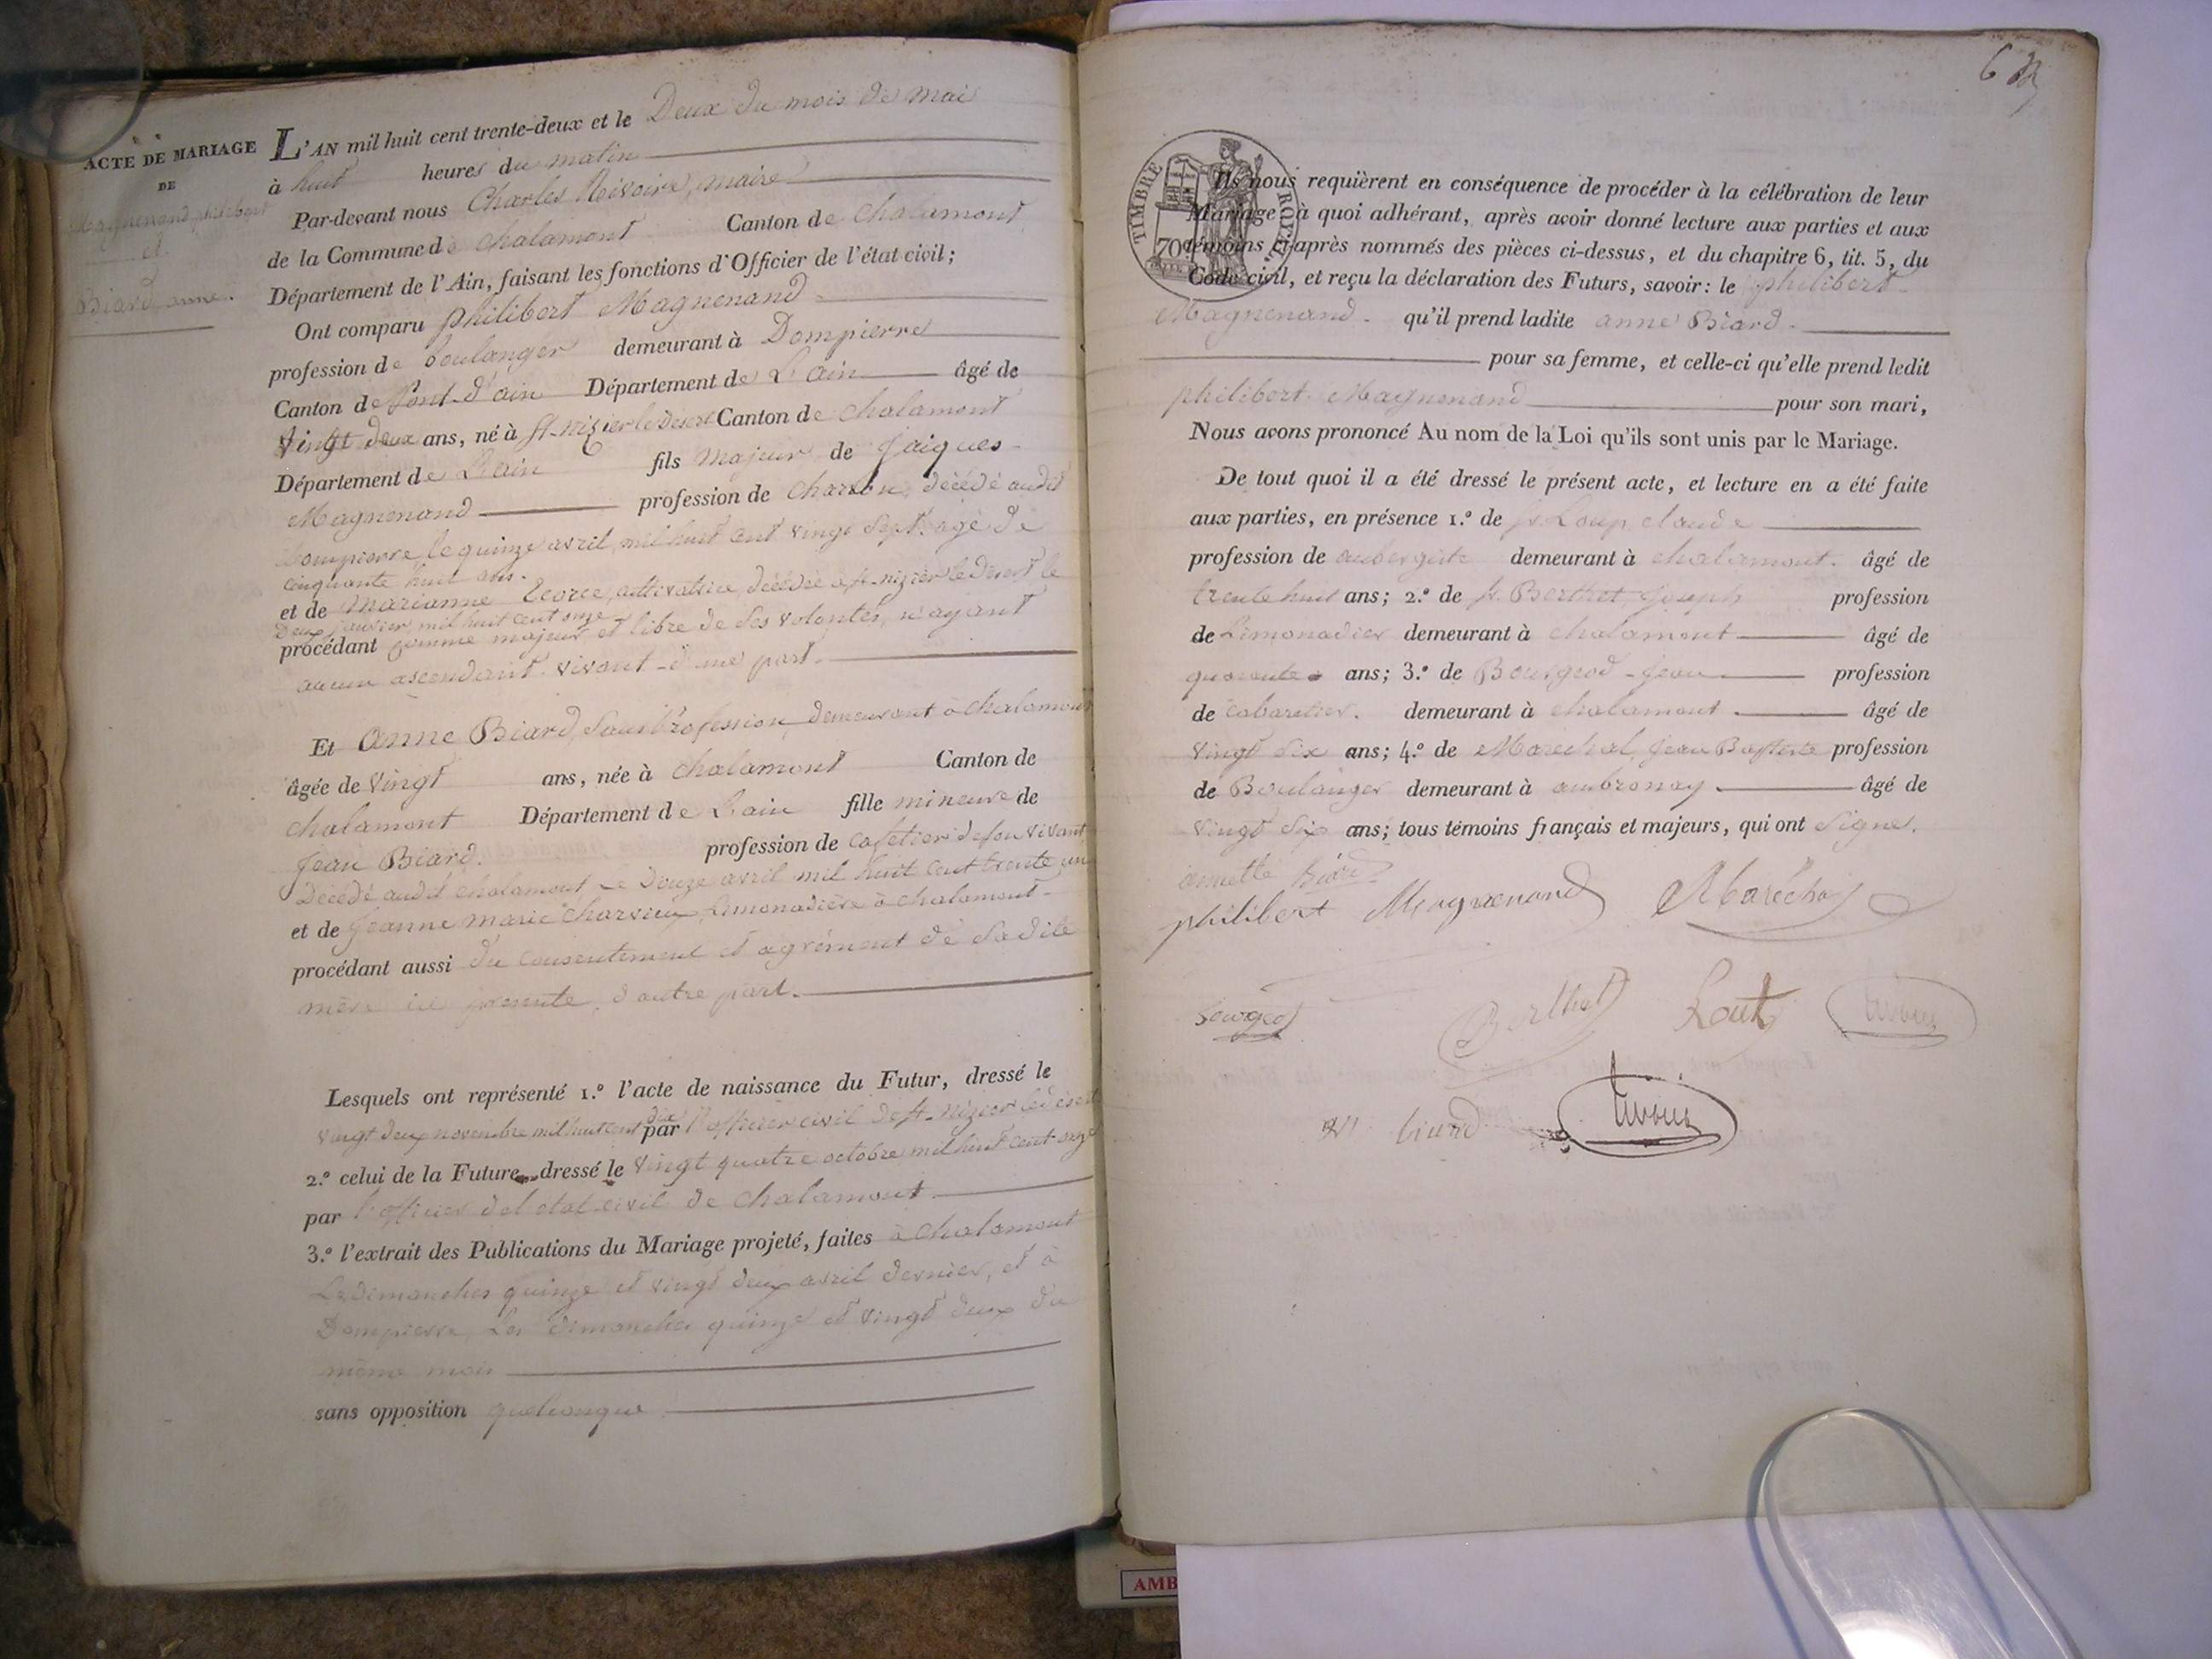 ACTE DE MARIAGE
DE
Magnenand philibert
et
Biard anne.
L'AN mil huit cent trente-deux et le Deux du mois de mai
à huit heures du matin
Par-devant nous Charles Rivoire, maire
de la Commune de chalamont Canton de chalamont
Département de l'Ain, faisant les fonctions d'Officier de l'état civil;
Ont comparu philibert Magnenand
profession de boulanger demeurant à Dompierre
Canton de Pont-d'ain Département de L'ain âgé de
Vingt deux ans, né à st-nizier le désert Canton de chalamont
Département de L'ain fils majeur de Jaiques
Magnenand profession de charron, décédé audit
Dompierre le quinze avril mil huit cent vingt sept, agé de
cinquante huit ans.
et de Marianne cultivatrice, décédée à st-nizier le désert le
Deux janvier mil huit cent onze
procédant comme majeur et libre de ses volontés, n'ayant
aucun ascendant vivant d'une part.
Et anne Biard, sans profession, demeurant à chalamont
âgée de vingt ans, née à chalamont Canton de
chalamont Département de L'ain fille mineure de
Jean Biard. profession de cafetier de son vivant
Décédé audit chalamont, le douze avril mil huit cent trente un
et de Jeanne marie Charvieux, Limonadière à chalamont
procédant aussi du consentement et agrément de sadite
mère ici présente, d'autre part.
Lesquels ont représenté 1.º l'acte de naissance du Futur, dressé le
vingt deux novembre mil huit cent dix par l'officier civil de st-nizier le désert
2.º celui de la Future dressé le vingt quatre octobre mil huit cent onze
par l'officier de l'état civil de chalamont.
3.º l'extrait des Publications du Mariage projeté, faites à chalamont
Les dimanches quinze et vingt deux avril dernier, et à
Dompierre, Les dimanches quinze et vingt deux du
même mois
sans opposition quelconque
6
TIMBRE ROYAL
70
Ils nous requièrent en conséquence de procéder à la célébration de leur
Mariage à quoi adhérant, après avoir donné lecture aux parties et aux
témoins ci-après nommés des pièces ci-dessus, et du chapitre 6, tit. 5, du
Code civil, et reçu la déclaration des Futurs, savoir: le philibert
Magnenand. qu'il prend ladite anne Biard.
pour sa femme, et celle-ci qu'elle prend ledit
philibert Magnenand pour son mari,
Nous avons prononcé Au nom de la Loi qu'ils sont unis par le Mariage.
De tout quoi il a été dressé le présent acte, et lecture en a été faite
aux parties, en présence 1.º de sr. Loup claude
profession de aubergiste demeurant à chalamont. âgé de
trente huit ans; 2.º de sr. Berthet Joseph profession
de Limonadier demeurant à chalamont âgé de
quarante ans; 3.º de Bourgeod Jean profession
de cabaretier. demeurant à chalamont. âgé de
vingt six ans; 4.º de Maréchal Jean Baptiste profession
de Boulanger demeurant à ambronay âgé de
vingt six ans; tous témoins français et majeurs, qui ont signé.
annette biard
philibert Magnenand Maréchal
Bourgeod
Berthet Lout
biard
AMB